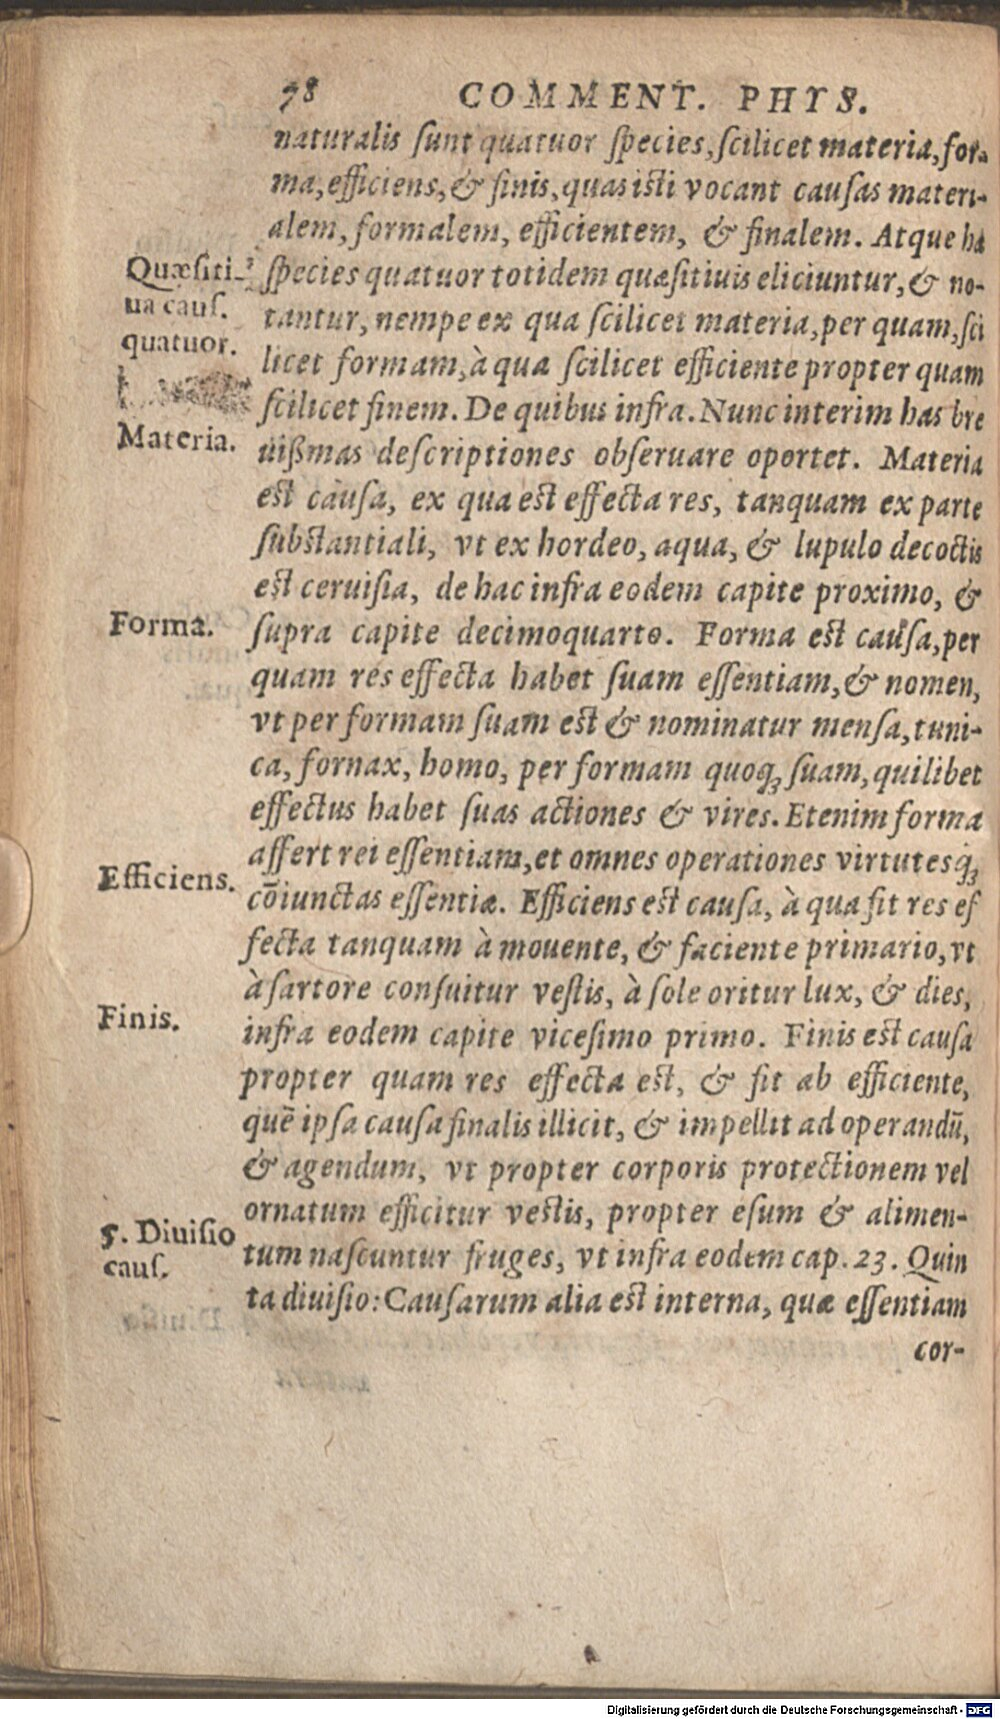 78 COMMENT. PHYS.
naturalis ſunt quatuor ſpecies, ſcilicet materia, for-
ma, efficiens, & finis, quas iſti vocant cauſas materi-
alem, formalem, efficientem, & finalem. Atque hæ
Quæſiti-
ua cauſ.
quatuor.
ſpecies quatuor totidem quæſitiuis eliciuntur, & no-
tantur, nempe ex qua ſcilicet materia, per quam, ſci
licet formam, à qua ſcilicet efficiente propter quam
ſcilicet finem. De quibus infra. Nunc interim has bre
Materia.
uißmas deſcriptiones obſeruare oportet. Materia
eſt cauſa, ex qua eſt effecta res, tanquam ex parte
ſubſtantiali, vt ex hordeo, aqua, & lupulo decoctis
eſt ceruiſia, de hac infra eodem capite proximo, &
Forma.
ſupra capite decimoquarto. Forma eſt cauſa, per
quam res effecta habet ſuam eſſentiam, & nomen,
vt per formam ſuam eſt & nominatur menſa, tuni-
ca, fornax, homo, per formam quoq; ſuam, quilibet
effectus habet ſuas actiones & vires. Etenim forma
affert rei eſſentiam, et omnes operationes virtutesq́;
Efficiens.
cōiunctas eſſentiæ. Efficiens eſt cauſa, à qua fit res ef
fecta tanquam à mouente, & faciente primario, vt
à ſartore conſuitur veſtis, à ſole oritur lux, & dies,
Finis.
infra eodem capite viceſimo primo. Finis eſt cauſa
propter quam res effecta eſt, & fit ab efficiente,
quē ipſa cauſa finalis illicit, & impellit ad operandū,
& agendum, vt propter corporis protectionem vel
ornatum efficitur veſtis, propter eſum & alimen-
5. Diuiſio
cauſ.
tum naſcuntur fruges, vt infra eodem cap. 23. Quin
ta diuiſio: Cauſarum alia eſt interna, quæ eſſentiam
cor-
Digitalisierung gefördert durch die Deutsche Forschungsgemeinschaft - DFG